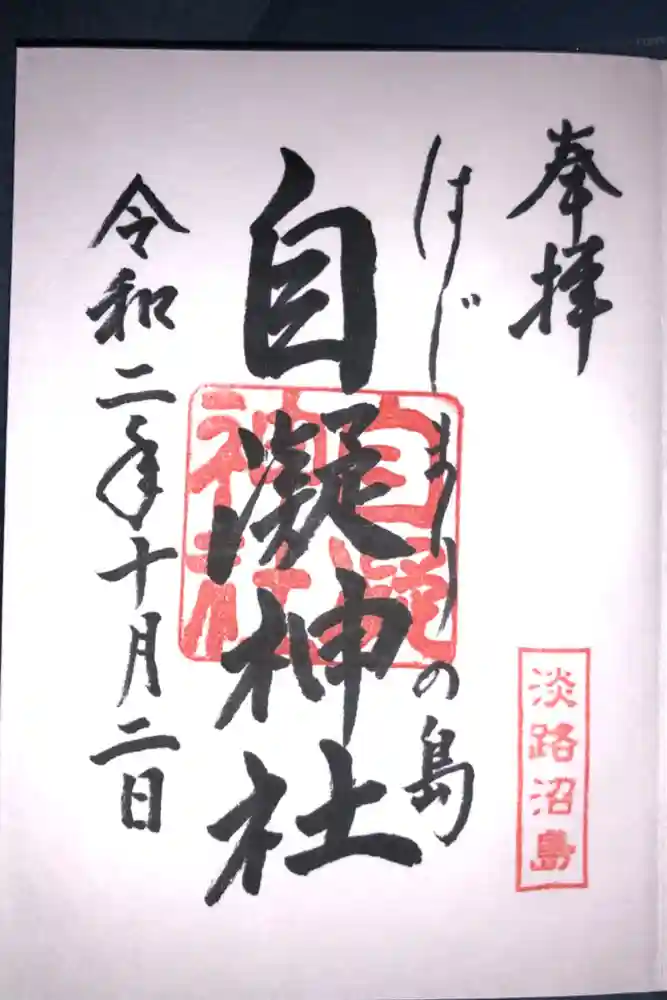 奉拝
はじまりの島
自凝神社
令和二年十月二日
自凝
神社
淡路沼島